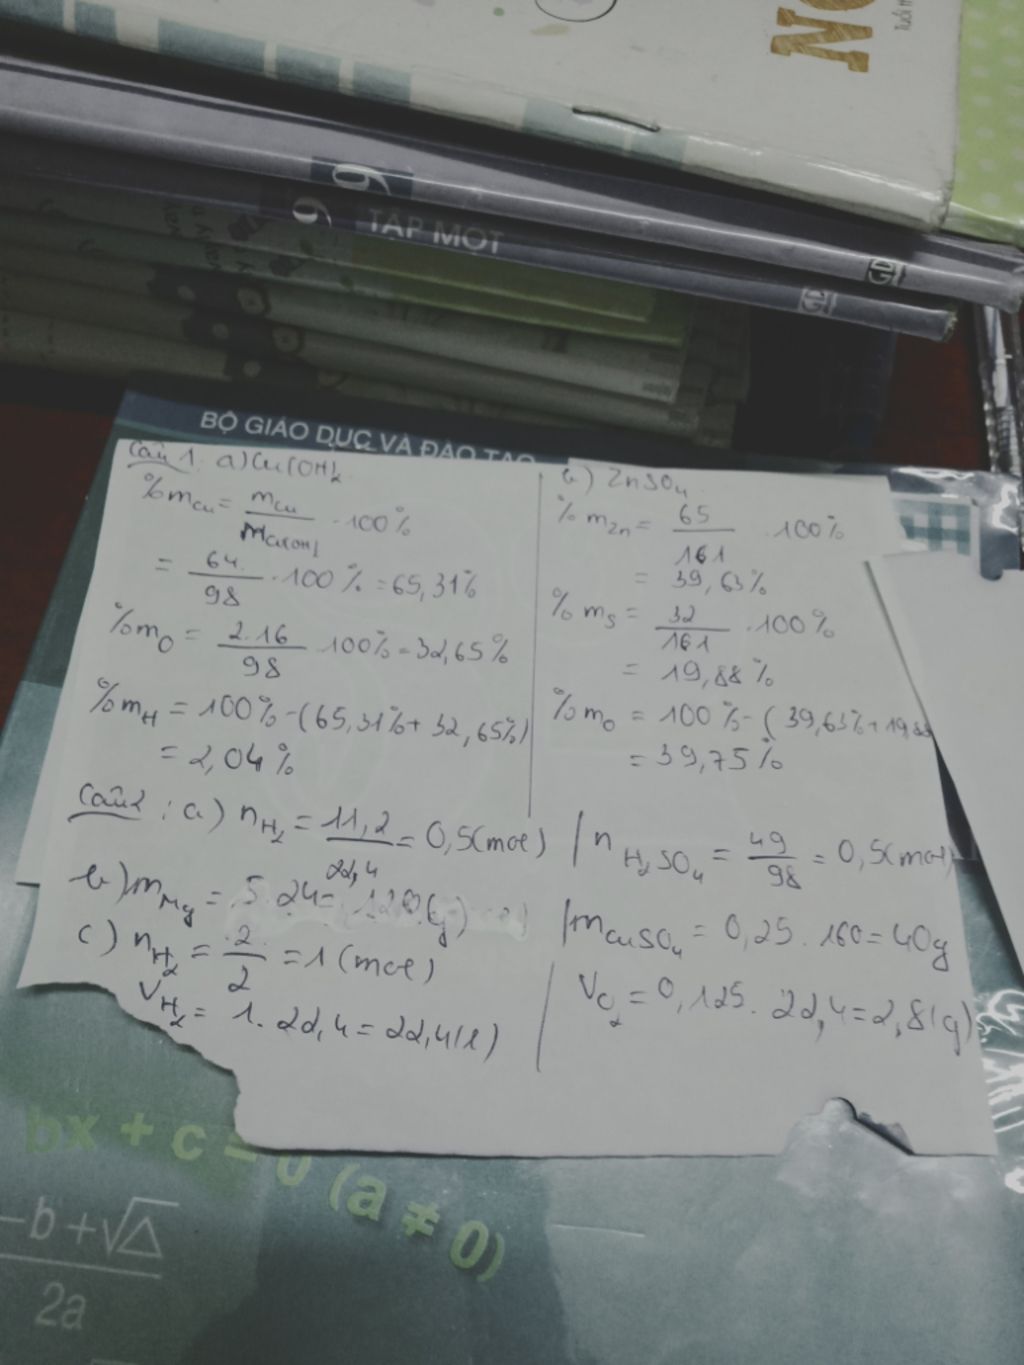 NO
Tuổi
9
9
TẬP MỘT
GD
GD
BỘ GIÁO DỤC VÀ ĐÀO TẠO
Câu 1. a) Cu(OH)2
%mCu = mCu / MCu(OH) . 100%
= 64 / 98 . 100% = 65,31%
%mO = 2.16 / 98 . 100% = 32,65%
%mH = 100% - (65,31% + 32,65%)
= 2,04%
b) ZnSO4
% mZn = 65 / 161 . 100%
= 39,63%
% mS = 32 / 161 . 100%
= 19,88%
%mO = 100% - (39,63% + 19,88
= 39,75%
Câu 2 : a) nH2 = 11,2 / 22,4 = 0,5(mol) | nH2SO4 = 49 / 98 = 0,5(mol)
b) mMg = 5.24 = 120(g) | mCuSO4 = 0,25 . 160 = 40g
c) nH2 = 2 / 2 = 1 (mol)
VH2 = 1. 22,4 = 22,4(l)
VO2 = 0,125 . 22,4 = 2,8(g)
bx + c = 0 (a ≠ 0)
-b + √Δ
2a